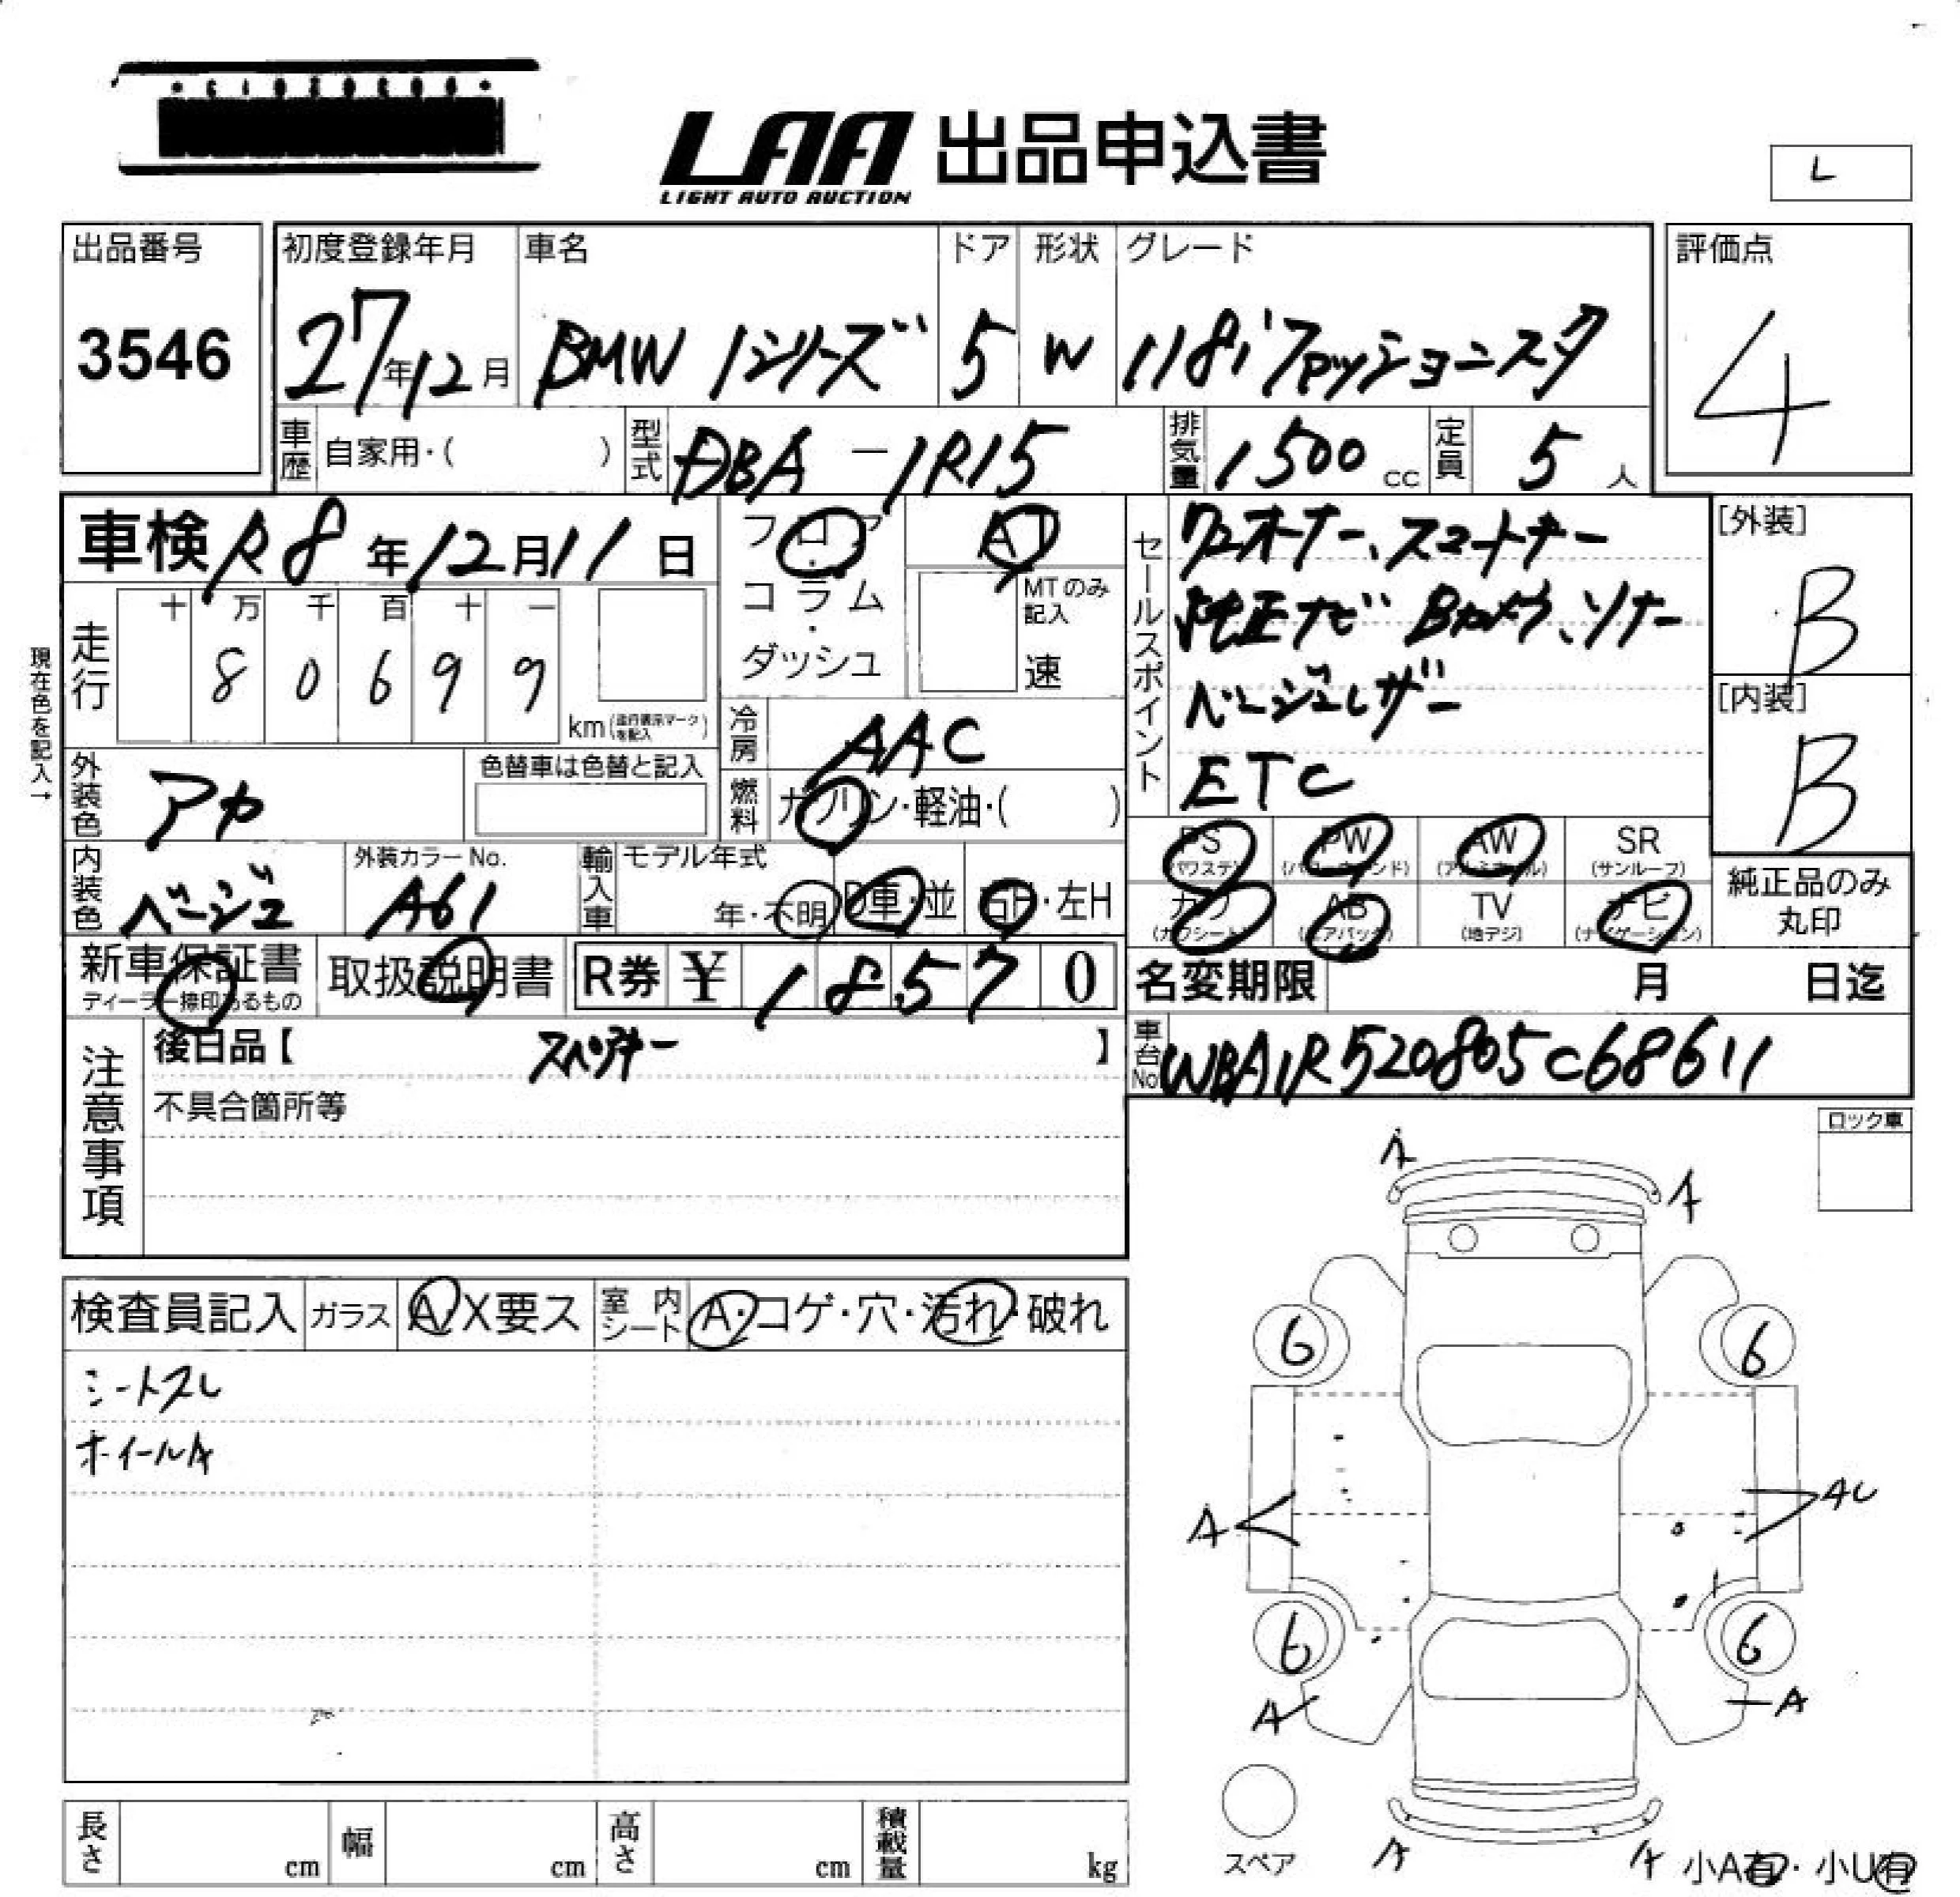 LAA 出品申込書
LIGHT AUTO AUCTION
L
出品番号 初度登録年月 車名 ドア 形状 グレード 評価点
3546 27年12月 BMW 1シリーズ 5 W 118i ファッショニスタ 4
車歴 自家用・( ) 型式 DBA-1R15 排気量 1500 cc 定員 5 人
車検 R8年12月11日
フロア・コラム・ダッシュ
AT
MTのみ記入
速
セールスポイント
ワンオーナー、スマートキー
純正ナビ Bカメラ、ソナー
ベージュレザー
ETC
[外装]
B
[内装]
B
現在色を記入→
走行 十 万 千 百 十 一
8 0 6 9 9 km(走行表示マークを記入)
冷房 AAC
外装色 アカ 色替車は色替と記入
燃料 ガソリン・軽油・( )
内装色 ベージュ 外装カラーNo. A61 輸入車 モデル年式 年・不明 D車・並 右H・左H
PS (パワステ) PW (パワーウィンド) AW (アルミホイール) SR (サンルーフ)
カワ (カワシート) AB (エアバック) TV (地デジ) ナビ (ナビゲーション)
純正品のみ丸印
新車保証書 ディーラー捺印あるもの 取扱説明書 R券 ¥ 1 8 5 7 0
名変期限 月 日迄
車台No. WBA1R520805C68611
注意事項
後日品【 スペアキー 】
不具合箇所等
ロック車
検査員記入 ガラス A X要ス 室内シート A・コゲ・穴・汚れ・破れ
シートスレ
ホイールA
A A
6 6
A AU
6 6
A A
スペア
A A
小A有・小U有
長さ cm 幅 cm 高さ cm 積載量 kg